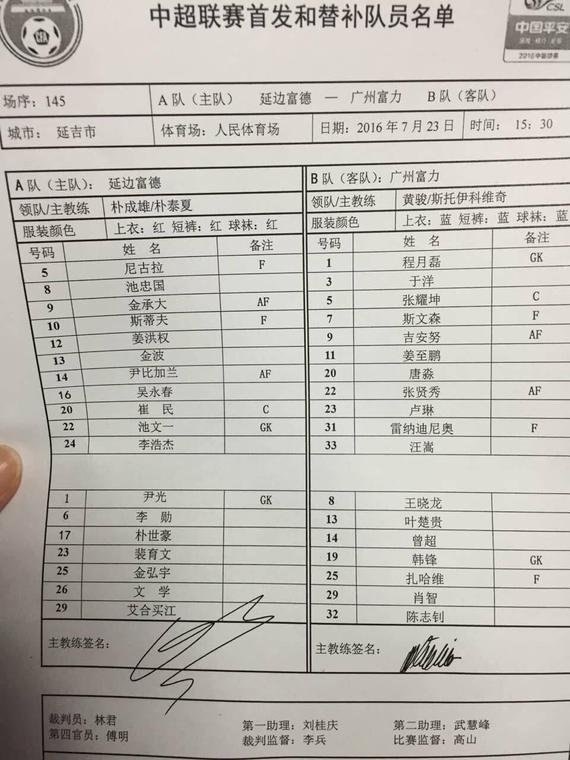 中超联赛首发和替补队员名单
CSL
中国平安
2016中超联赛
场序：145 A队（主队） 延边富德 — 广州富力 B队（客队）
城市： 延吉市 体育场：人民体育场 日期：2016年7月23日 时间： 15：30
A队（主队）： 延边富德 B队（客队）：广州富力
领队/主教练 朴成雄/朴泰夏 领队/主教练 黄骏/斯托伊科维奇
服装颜色 上衣：红 短裤：红 球袜：红 服装颜色 上衣：蓝 短裤：蓝 球袜：蓝
号码 姓 名 备注 号码 姓 名 备注
5 尼古拉 F 1 程月磊 GK
8 池忠国 3 于洋
9 金承大 AF 5 张耀坤 C
10 斯蒂夫 F 7 斯文森 F
12 姜洪权 9 吉安努 AF
13 金波 11 姜至鹏
14 尹比加兰 AF 20 唐淼
16 吴永春 22 张贤秀 AF
20 崔 民 C 23 卢琳
22 池文一 GK 31 雷纳迪尼奥 F
24 李浩杰 33 汪嵩
1 尹光 GK 8 王晓龙
6 李 勋 13 叶楚贵
17 朴世豪 14 曾超
23 裴育文 19 韩锋 GK
25 金弘宇 25 扎哈维 F
26 文 学 29 肖智
29 艾合买江 32 陈志钊
主教练签名： 主教练签名：
裁判员：林君 第一助理：刘桂庆 第二助理：武慧峰
第四官员：傅明 裁判监督：李兵 比赛监督：高山